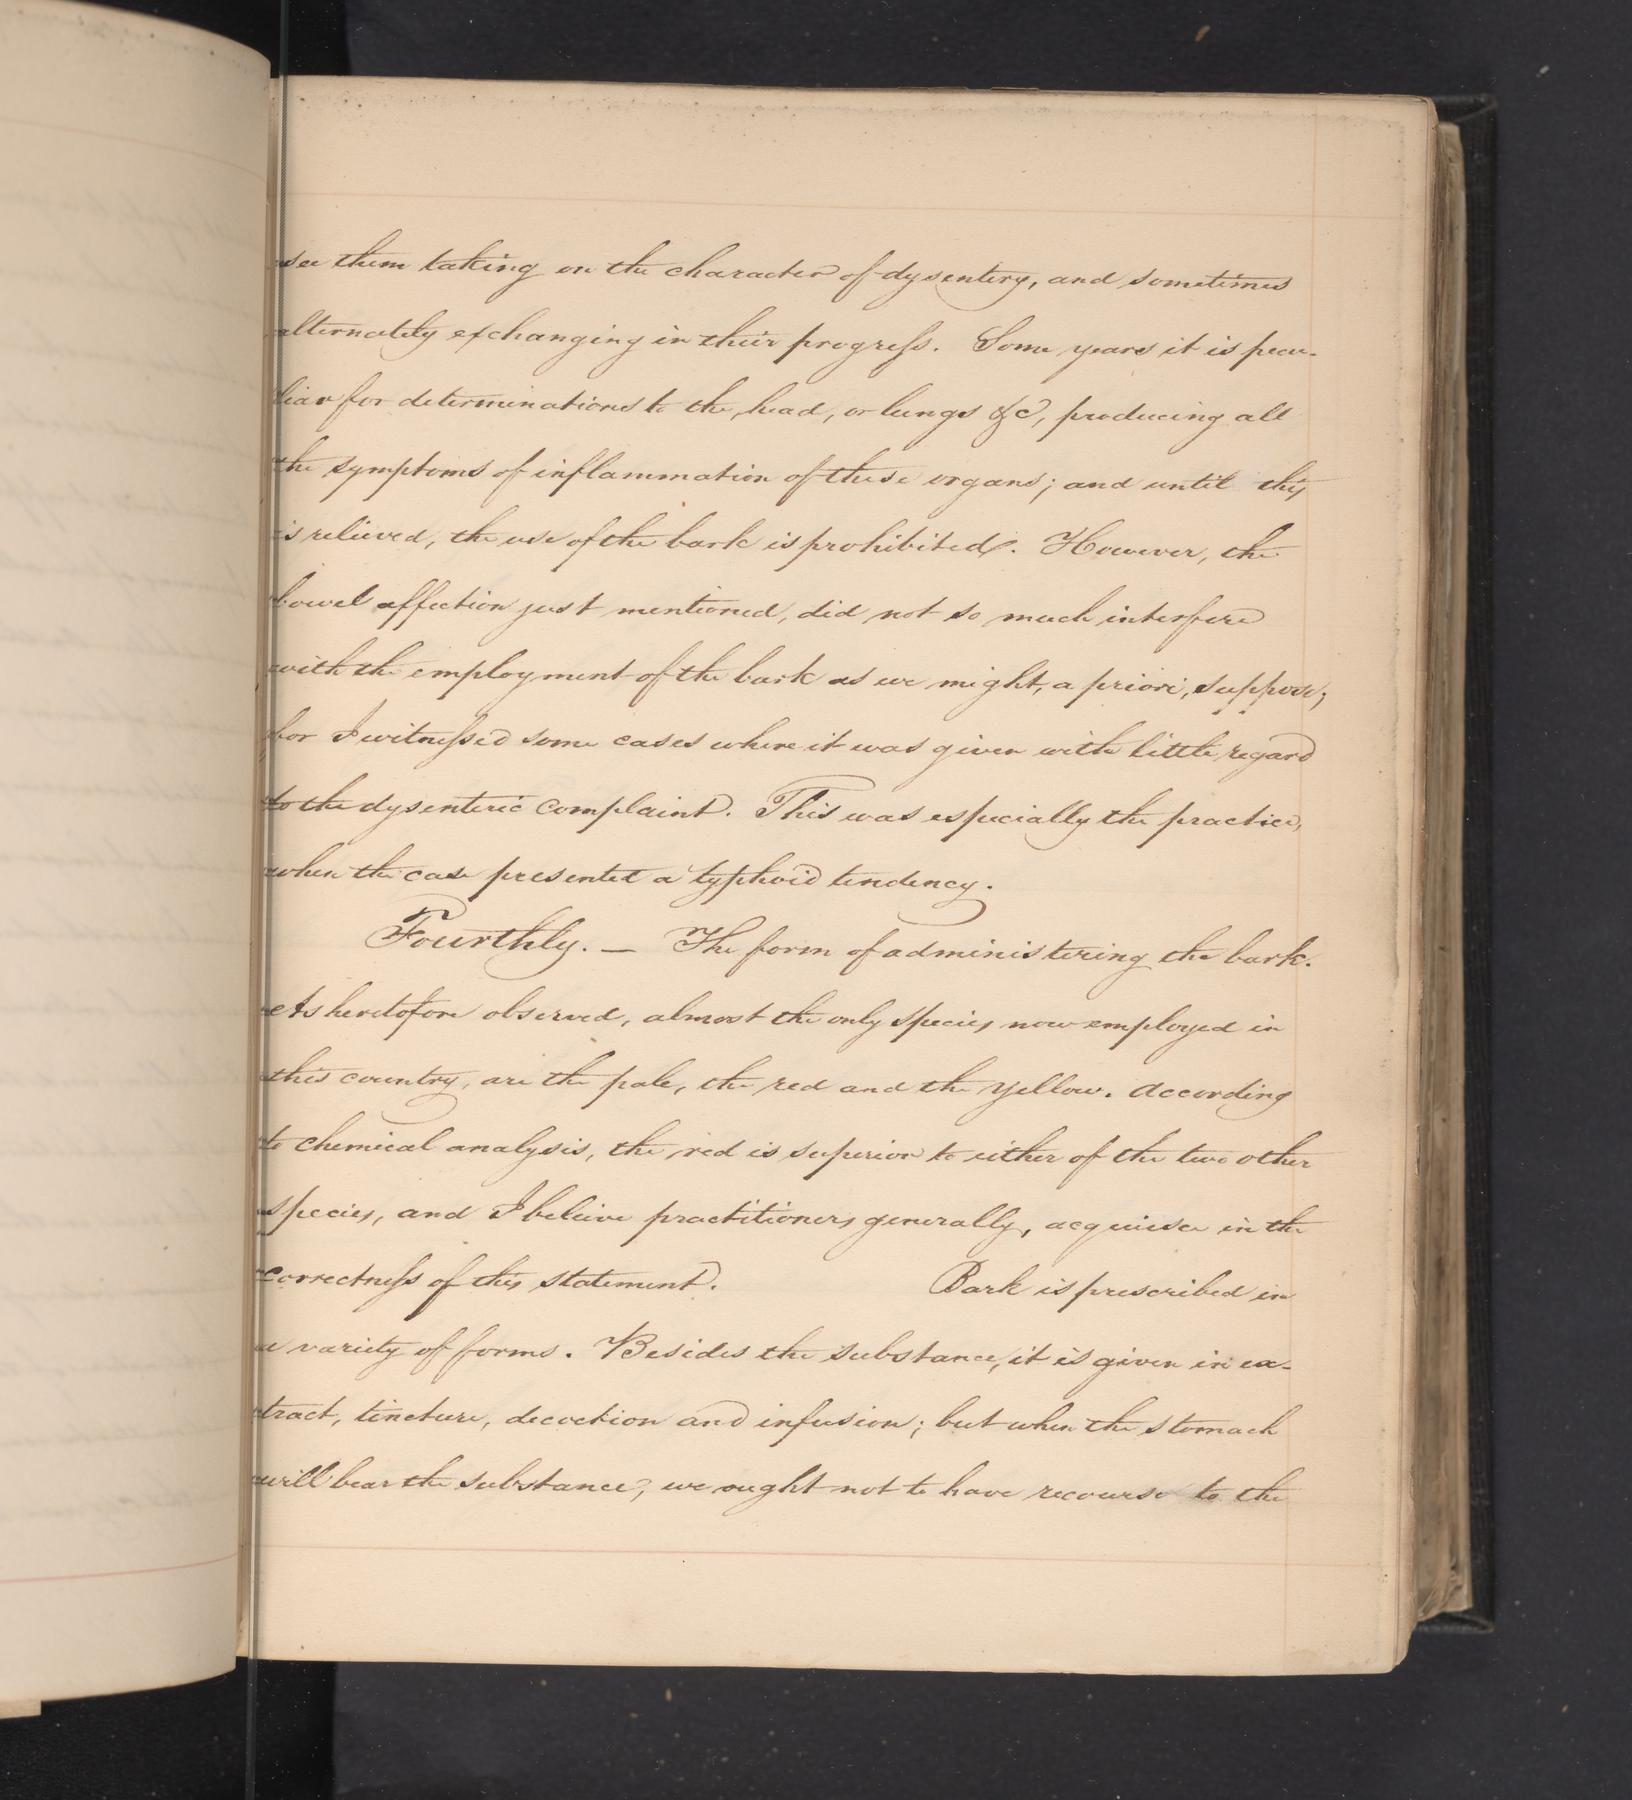 see them taking on the character of dysentery, and sometimes
alternately exchanging in their progress. Some years it is pecu-
liar for determinations to the head, or lungs &c, producing all
the symptoms of inflammation of these organs; and until this
is relieved, the use of the bark is prohibited. However, the
bowel affection just mentioned, did not so much interfere
with the employment of the bark as we might, a priori, suppose;
for I witnessed some cases where it was given with little regard
to the dysenteric complaint. This was especially the practice,
when the case presented a typhoid tendency.
Fourthly. — The form of administering the bark.
As heretofore observed, almost the only species now employed in
this country, are the pale, the red and the yellow. According
to chemical analysis, the red is superior to either of the two other
species, and I beleive practitioners generally, acquiesce in the
correctness of this statement. Bark is prescribed in
a variety of forms. Besides the substance, it is given in ex-
tract, tincture, decoction and infusion; but when the stomach
will bear the substance, we ought not to have recourse to the